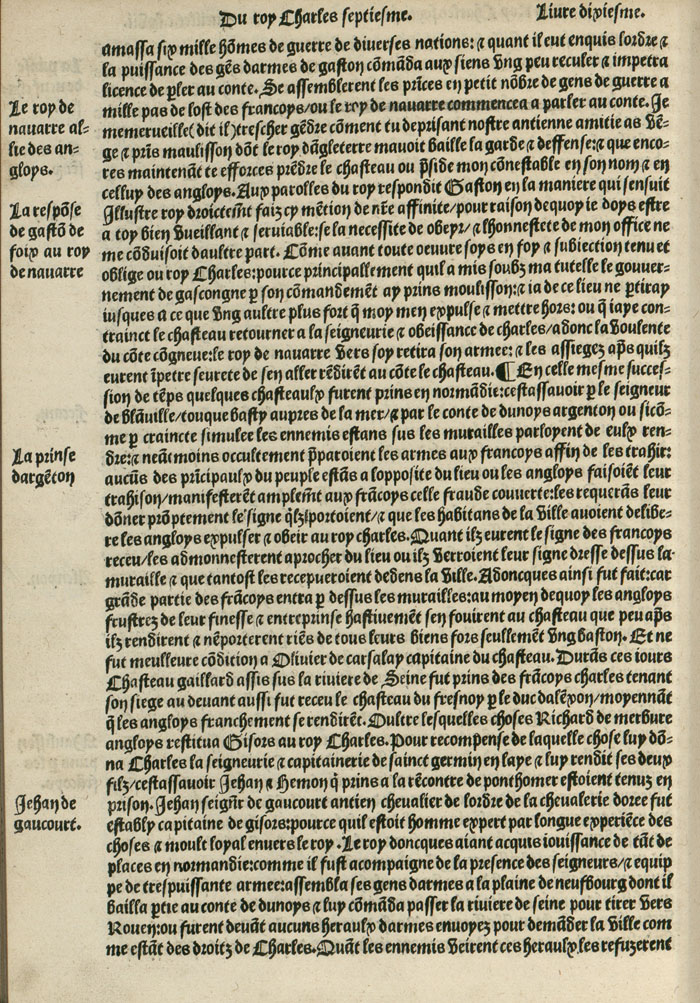 Du roy Charles septiesme.
Liure dixiesme.
amassa six mille hõmes de guerre de diuerses nations: ⁊ quant il eut enquis lordre ⁊
la puissance des gẽs darmes de gaston cõmãda aux siens vng peu reculer ⁊ impetra
licence de ꝑler au conte. Se assemblerent les prĩces en petit nõbre de gens de guerre a
mille pas de lost des francoys/ou le roy de nauarre commencea a parler au conte. Je
memerueille(dit il)trescher gẽdre cõment tu deprisant nostre antienne amitie as vẽ-
ge ⁊ prĩs maulisson dõt le roy dãgleterre mauoit baille la garde ⁊ deffense: ⁊ que enco-
res maintenãt te efforces prẽdre le chasteau ou p̃side mon cõnestable en son nom ⁊ en
celluy des angloys. Aux parolles du roy respondit Gaston en la maniere qui sensuit
Illustre roy droictem̃t faiz cy mẽtion de nr̃e affinite/pour raison dequoy ie doys estre
a toy bien vueillant ⁊ seruiable: se la necessite de obeyr/ ⁊ lhonnestete de mon office ne
me cõduisoit daultre part. Cõme auant toute oeuure soys en foy ⁊ subiection tenu et
oblige ou roy Charles: pource principallement quil a mis soubz ma tutelle le gouuer-
nement de gascongne ꝑ son cõmandemẽt ay prins moulisson: ⁊ ia de ce lieu ne ꝑtiray
iusques a ce que vng aultre plus fort q̃ moy men expulse ⁊ mettre hors: ou q̃ iaye con-
trainct le chasteau retourner a la seigneurie ⁊ obeissance de charles/adonc la voulente
du cõte cõgneue: le roy de nauarre vers soy retira son armee: ⁊ les assiegez ap̃s quilz
eurent ĩpetre seurete de sen aller rẽdirẽt au cõte le chasteau. ¶ En celle mesme succes-
sion de tẽps quelques chasteaulx furent prins en normãdie: cestassauoir ꝑ le seigneur
de blãuille/touque basty aupres de la mer/ ⁊ par le conte de dunoys argenton ou sicõ-
me ꝑ craincte simulee les ennemis estans sus les murailles parloyent de eulx ren-
dre: ⁊ neãtmoins occultement p̃paroient les armes aux francoys affin de les trahir:
aucũs des prĩcipaulx du peuple estãs a lopposite du lieu ou les angloys faisoiẽt leur
trahison/manifesterẽt amplem̃t aux frãcoys celle fraude couuerte: les requerãs leur
dõner prõptement le signe q̃lz portoient/ ⁊ que les habitans de la ville auoient delibe-
re les angloys expulser ⁊ obeir au roy charles. Quant ilz eurent le signe des francoys
receu/les admonnesterent aprocher du lieu ou ilz verroient leur signe dresse dessus la
muraille ⁊ que tantost les recepueroient dedens la ville. Adoncques ainsi fut fait: car
grãde partie des frãcoys entra ꝑ dessus les murailles: au moyen dequoy les angloys
frustrez de leur finesse ⁊ entreprinse hastiuemẽt sen fouirent au chasteau que peu ap̃s
ilz rendirent ⁊ nẽporterent riẽs de tous leurs biens fors seullemẽt vng baston. Et ne
fut meulleure cõdition a Oliuier de carsalay capitaine du chasteau. Durãs ces iours
Chasteau gaillard assis sus la riuiere de Seine fut prins des frãcoys charles tenant
son siege au deuant aussi fut receu le chasteau du fresnoy ꝑ le duc dalẽxon/moyennãt
q̃ les angloys franchement se rendirẽt. Oultre lesquelles choses Richard de merbure
angloys restitua Gisors au roy Charles. Pour recompẽnse de laquelle chose luy dõ-
na Charles la seigneurie ⁊ capitainerie de sainct germin en laye ⁊ luy rendit ses deux
filz/cestassauoir Jehan ⁊ Hemon q̃ prins a la rẽcontre de ponthomer estoient tenuz en
prison. Jehan seignr̃ de gaucourt antien cheualier de lordre de la cheualerie doree fut
estably capitaine de gisors: pource quil estoit homme expert par longue experiẽce des
choses ⁊ moult loyal enuers le roy. Le roy doncques aiant acquis iouissance de tãt de
places en normandie: comme il fust acompaigne de la presence des seigneurs/ ⁊ equip
pe de trespuissante armee: assembla ses gens darmes a la plaine de neufbourg dont il
bailla ꝑtie au conte de dunoys ⁊ luy cõmãda passer la riuiere de seine pour tirer vers
Rouen: ou furent deuãt aucuns heraulx darmes enuoyez pour demãder la ville com
me estãt des droitz de Charles. Quãt les ennemis veirent ces heraulx les refuzerent
Le roy de
nauarre al-
lie des an-
gloys.
La respõse
de gastõ de
foix au roy
de nauarre
La prinse
dargẽton
Jehan de
gaucourt.